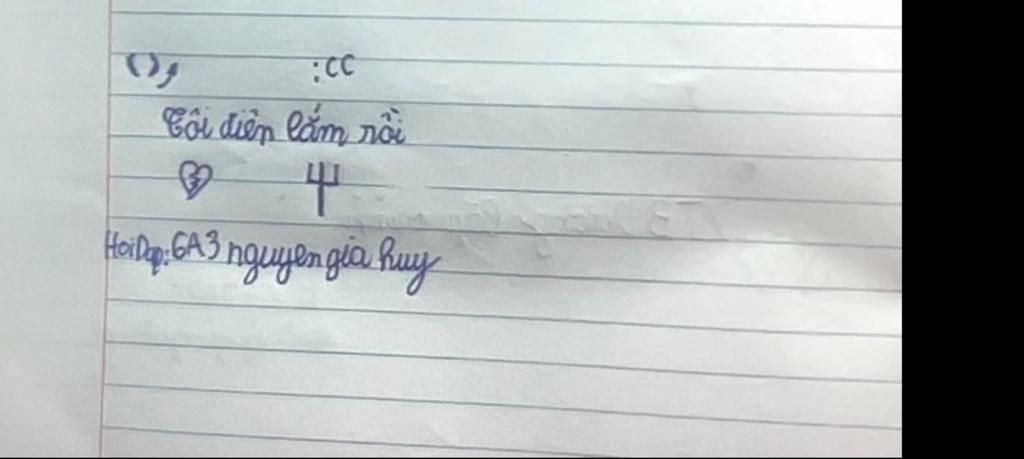 (), :CC
Tôi điên lắm rồi
💔 Ψ
HoiDap: 6A3 nguyen gia huy